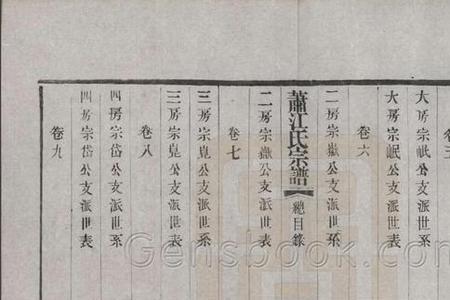 卷三
大房宗岷公支派世系
大房宗岷公支派世表
卷六
二房宗嶽公支派世系
蕭江氏宗譜 總目錄
二房宗嶽公支派世表
卷七
三房宗崑公支派世系
三房宗崑公支派世表
卷八
四房宗岱公支派世系
四房宗岱公支派世表
卷九
Gensbook.com